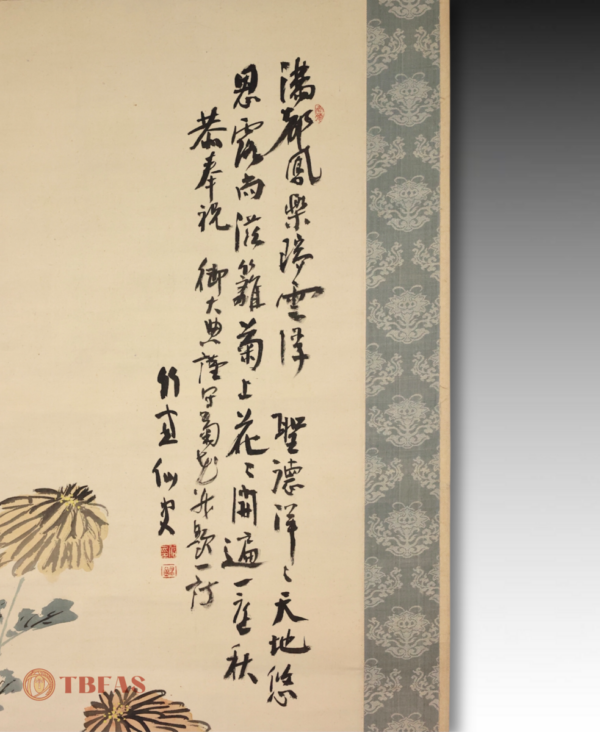 滿都鳳樂瑞雲浮 聖德洋〻天地悠
恩露尚滋籬菊上花〻開遍一庭秋
恭奉祝 御大典謹写菊花并題一詩
竹仙史
TBEAS